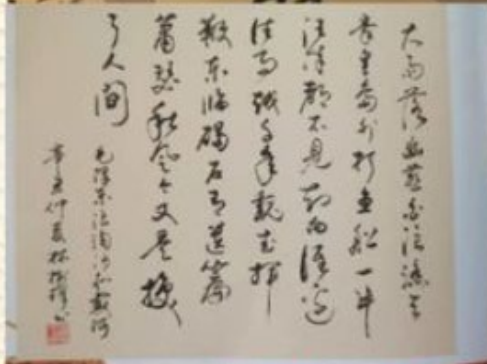 大雨落幽燕白浪滔天
秦皇岛外打鱼船一片
汪洋都不见知向谁边
往事越千年魏武挥
鞭东临碣石有遗篇
萧瑟秋风今又是换
了人间
毛泽东浪淘沙北戴河
仲夏林